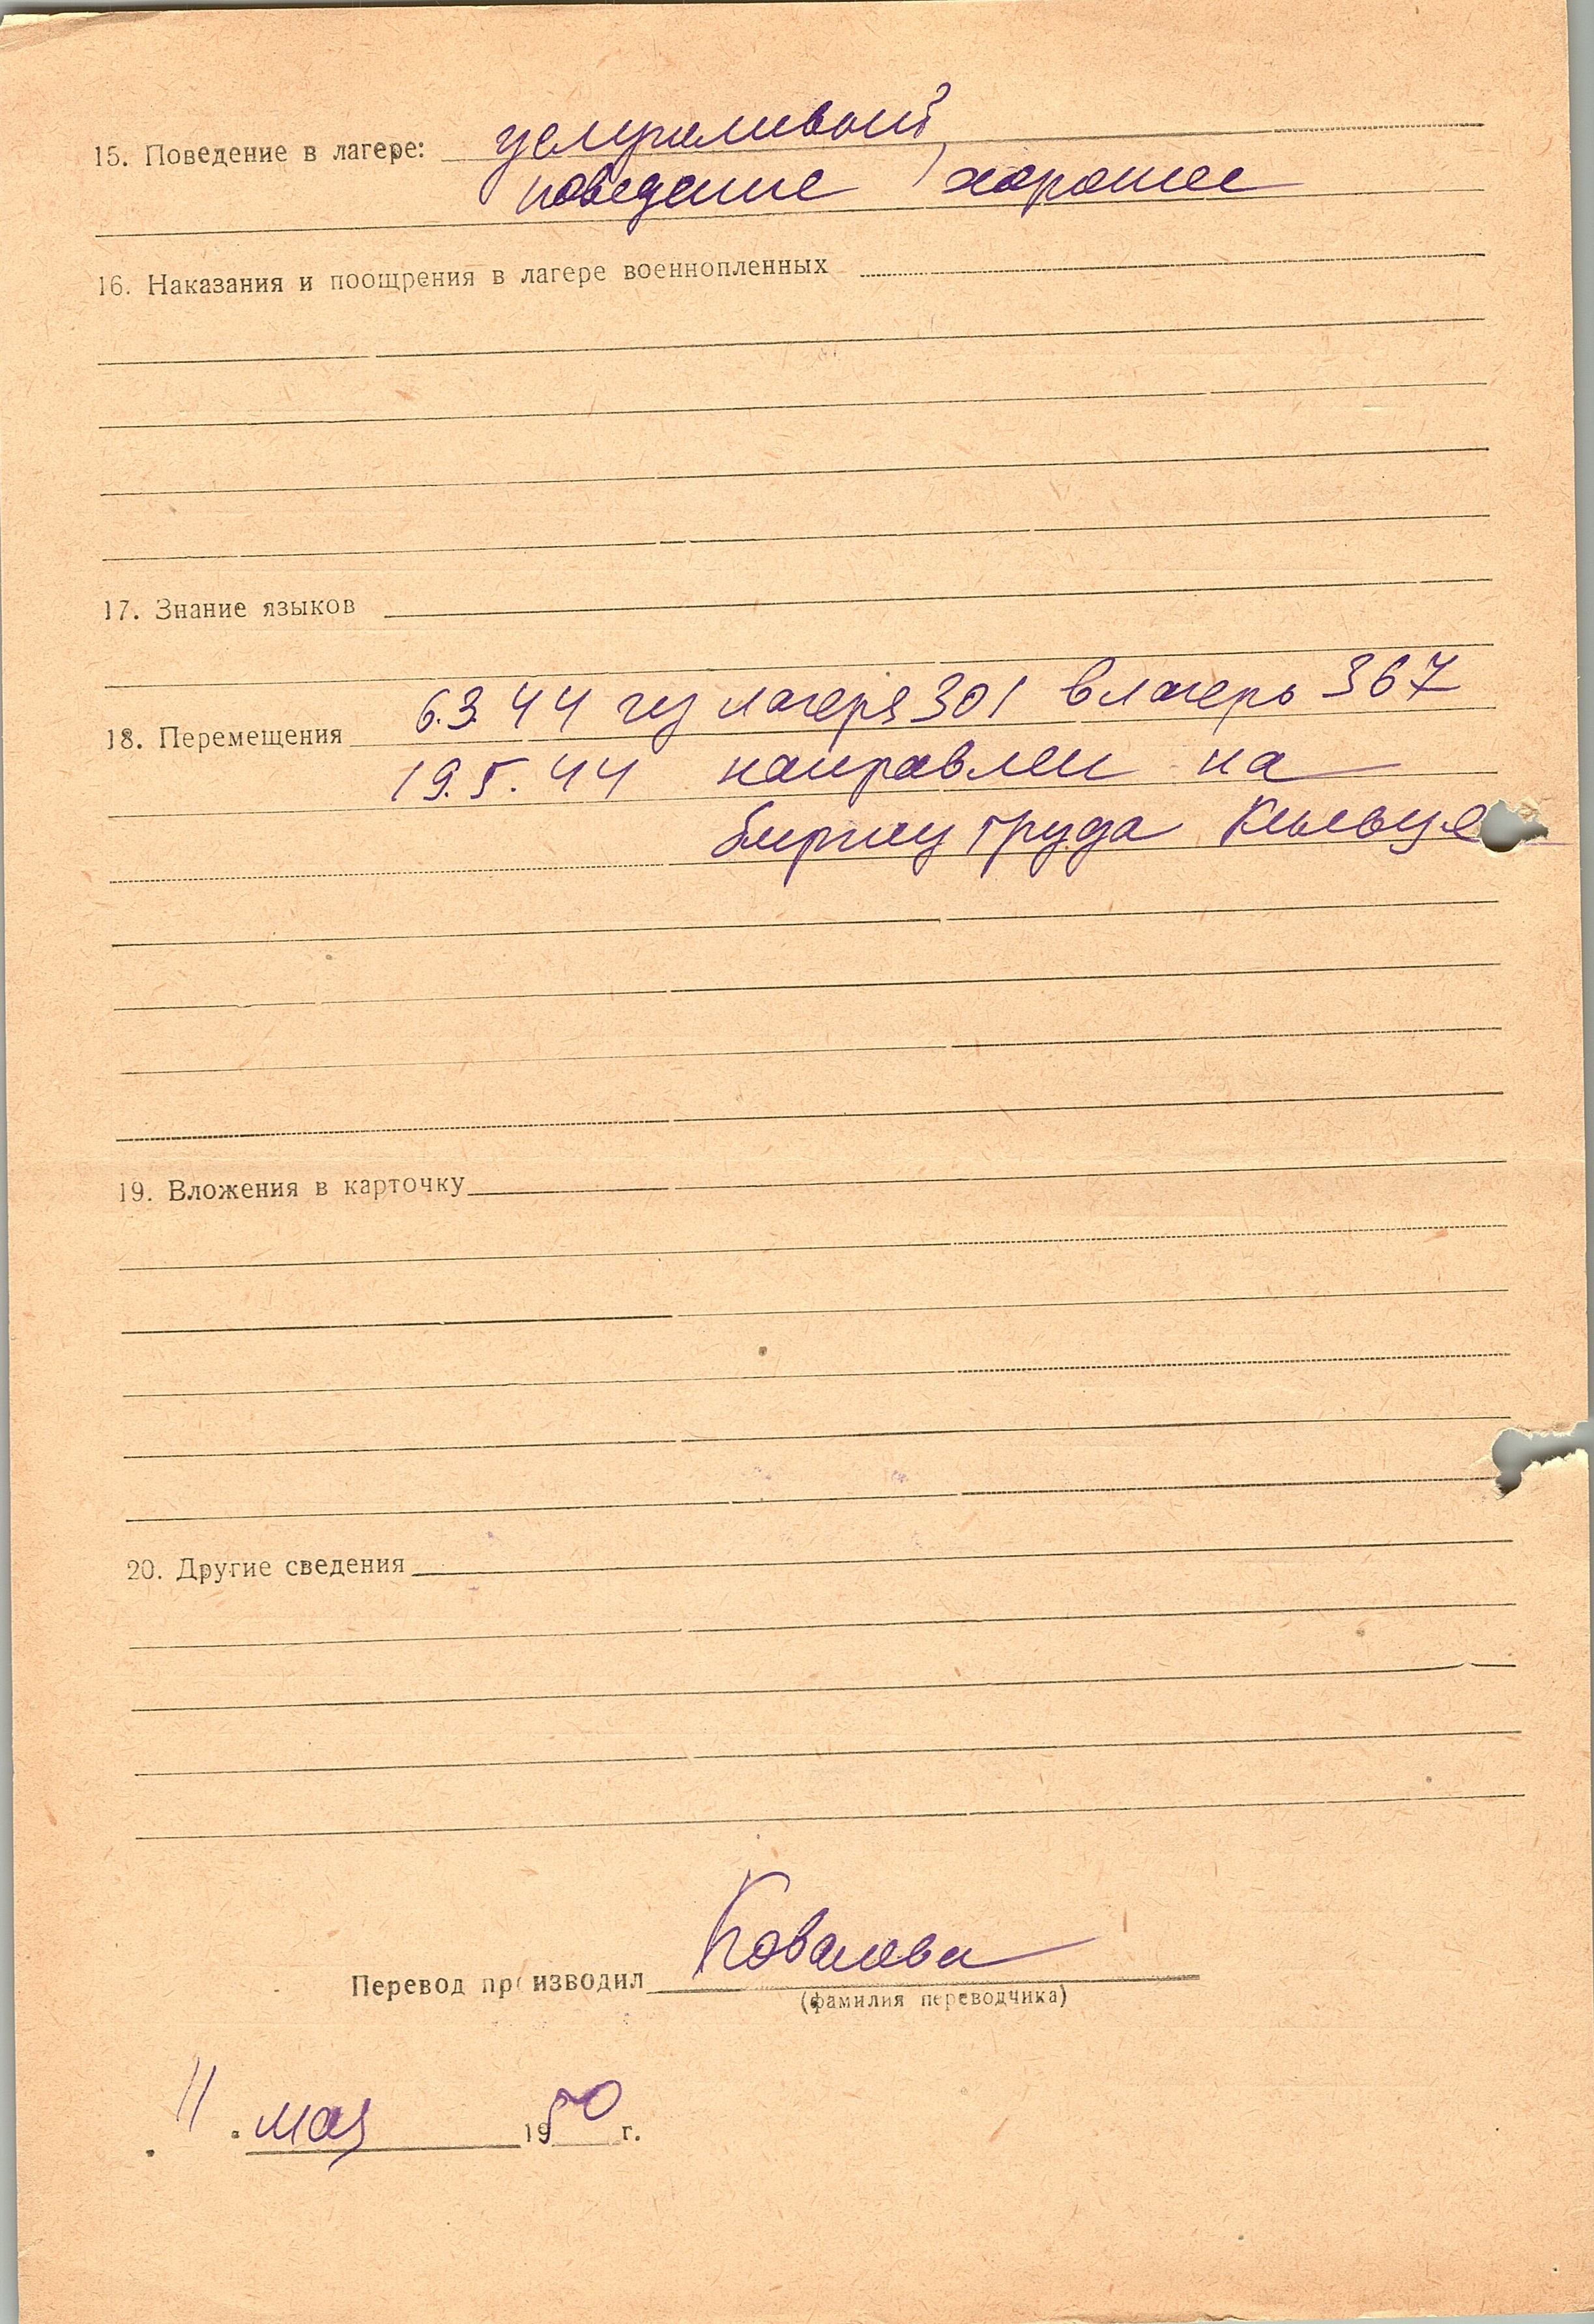 15. Поведение в лагере: услужливый,
поведение хорошее
16. Наказания и поощрения в лагере военнопленных
17. Знание языков
18. Перемещения 6.3.44 из лагеря 301 в лагерь 367
19.5.44 направлен на
биржу труда Кильце
19. Вложения в карточку
20. Другие сведения
Перевод производил Ковалева
(фамилия переводчика)
11 мая 1950 г.